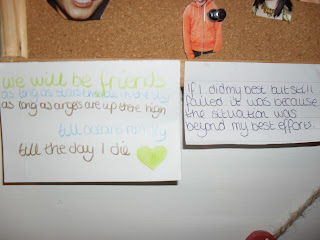 we will be friends
as long as stars twinkle in the sky
as long as angels are up there high
till oceans run dry
till the day I die
If I did my best but still
failed it was because
the situation was
beyond my best efforts.